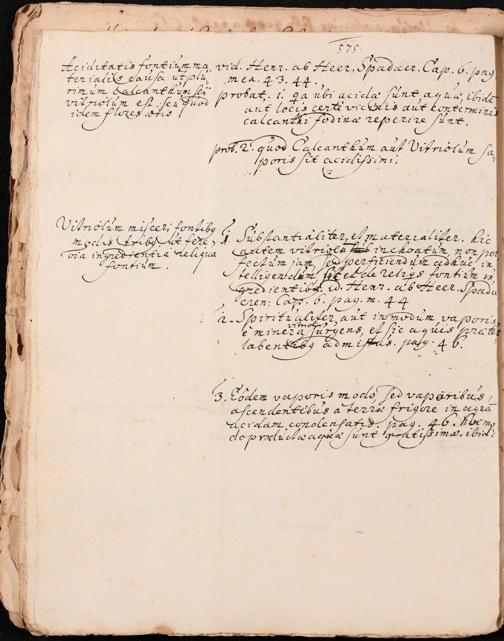 575.
Aciditatis fontium ma-
terialis causa ut plu-
rimum calcanthum seu
vitriolum est. seu quod
idem flores æris
vid. Henr. ab Heer. Spadacr. Cap. 6. pag.
mea. 43. 44.
probat. 1. qa ubi acidæ sunt aquæ, ibidē
aut locis aut conterminis
calcanthi fodinæ reperire sunt.
prob. 2. quod Calcanthum aut Vitriolum sa-
poris sit acidissimi.
Vitriolum misceri fontibq
modis tribq ut fere,
via ingredientia reliqua
fontium.
1. Substantialiter, et materialiter. hic
autem vitriolū inchoatum, non per
fectum jam, sed perficiendum adhuc in-
telligendum sic et de reliqs fontium in
gredientibq. id. Henr. ab Heer. Spada
cren: Cap. 6. pag. m. 44
2. Spiritualiter, aut in modum vaporis
è minera vitrioli surgens, et sic aquis præter
labentibq admistus. pag. 46.
3. Eōdem vaporis modo, sed vaporibus
ascendentibus a terræ frigore in aquā
acidam condensatis. pag. 46. hoc mo
do productæ aquæ sunt gratissimæ. ibid: